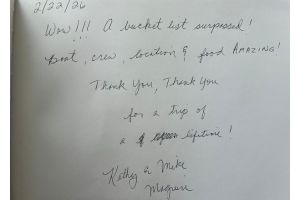 2/22/26
Wow!!! A bucket list surpassed!
Boat, crew, location & food AMAZING!
Thank You, Thank You
for a trip of
a lifetime!
Kathy & Mike